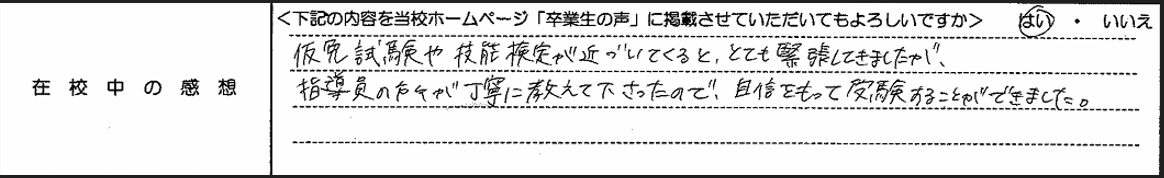 <下記の内容を当校ホームページ「卒業生の声」に掲載させていただいてもよろしいですか> はい ・ いいえ
在校中の感想
仮免試験や技能検定が近づいてくると、とても緊張してきましたが、
指導員の方々が丁寧に教えて下さったので、自信をもって受験することができました。